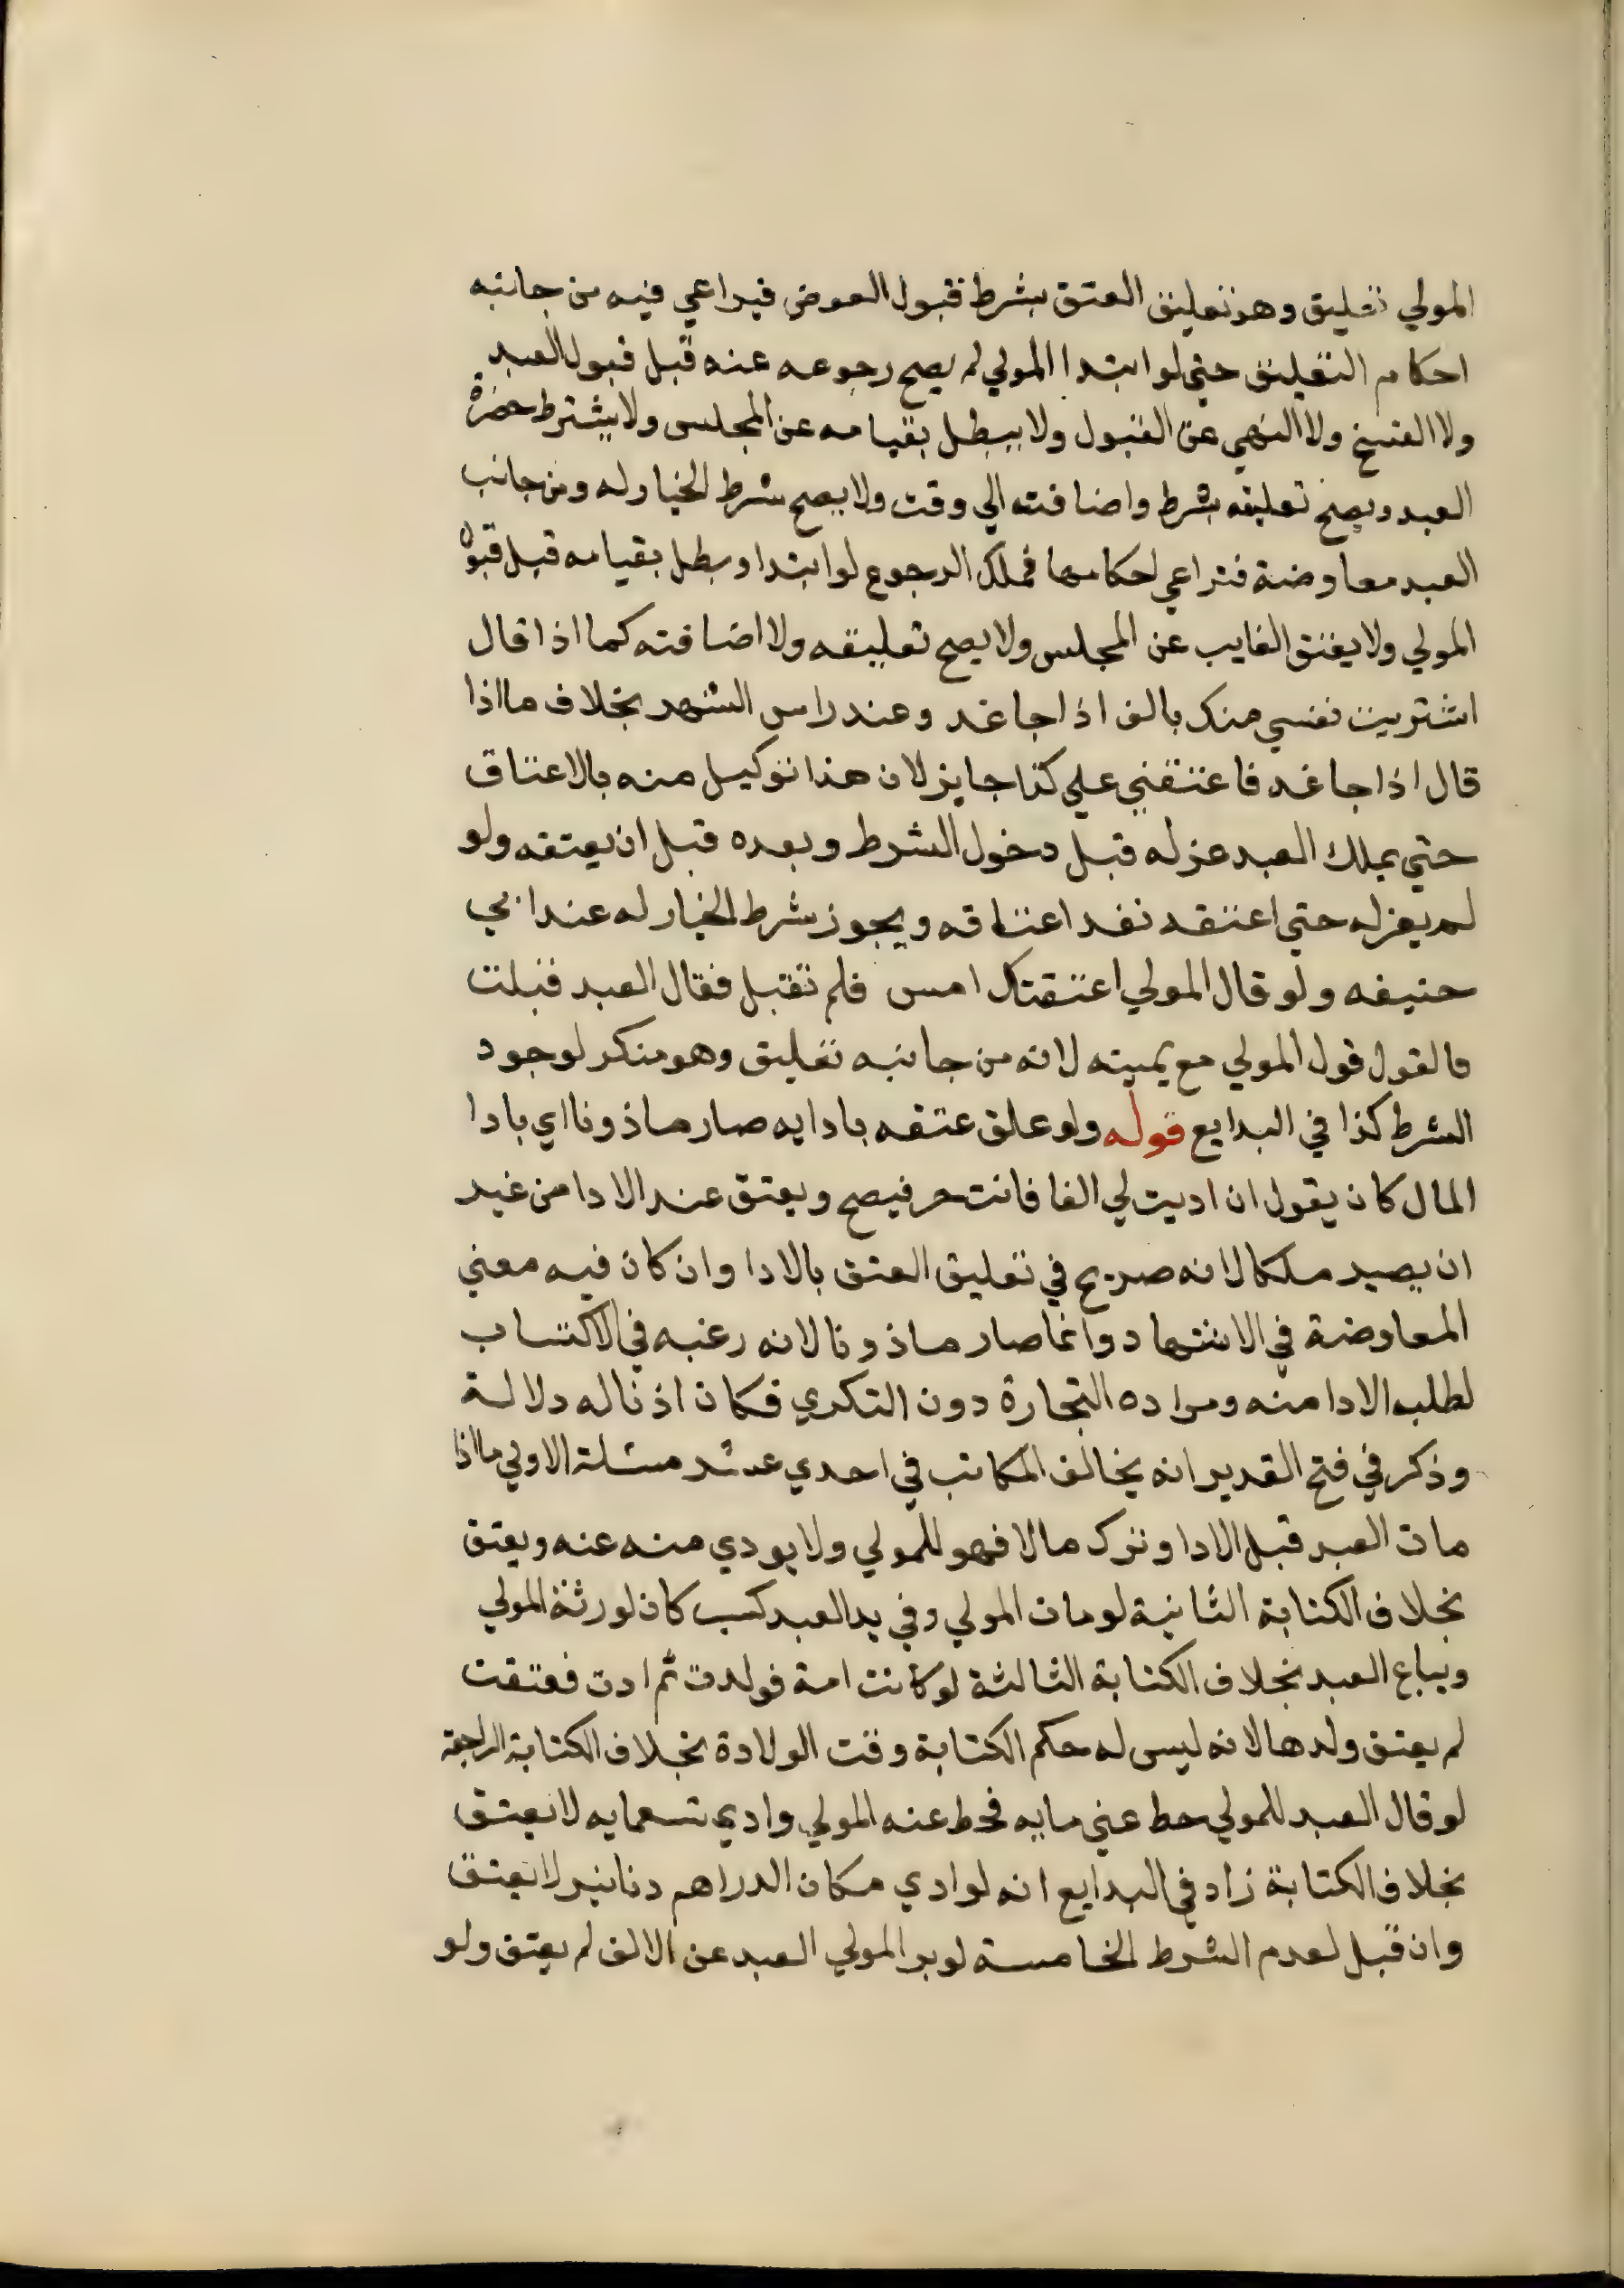 المولي تعليق وهو تعليق العتق بشرط قبول العوض فيراعي فيه من جانبه
احكام التعليق حتي لو ابتدا المولي لم يصح رجوعه عنه قبل قبول العبد
ولا الفسخ ولا النهي عن القبول ولا يبطل بقيامه عن المجلس ولا يشترط حضرة
العبد ويصح تعليقه بشرط واضافته الي وقت ولا يصح شرط الخيار له ومن جانب
العبد معاوضة فتراعي احكامها فملك الرجوع لو ابتدا وبطل بقيامه قبل قبول
المولي ولا يعتق الغايب عن المجلس ولا يصح تعليقه ولا اضافته كما اذا قال
اشتريت نفسي منك بالف اذا جا غد وعند راس الشهر بخلاف ما اذا
قال اذا جا غد فاعتقني علي كذا جايز لان هذا توكيل منه بالاعتاق
حتي يملك العبد عزله قبل دخول الشرط وبعده قبل ان يعتقه ولو
لم يعزله حتي اعتقه نفد اعتاقه ويجوز شرط الخيار له عند ابي
حنيفه ولو قال المولي اعتقتك امس فلم تقبل فقال العبد قبلت
فالقول قول المولي مع يمينه لانه من جانبه تعليق وهو منكر لوجود
الشرط كذا في البدايع قوله ولو علق عتقه بادايه صار ماذونا اي بادا
المال كان يقول ان اديت لي الفا فانت حر فيصح ويعتق عند الادا من غير
ان يصير ملكا لانه صريح في تعليق العتق بالادا وان كان فيه معني
المعاوضة في الانتها دوانما صار ماذونا لانه رغبه في الاكتساب
لطلب الادا منه ومراده التجارة دون التكدي فكان اذناله دلالة
وذكر في فتح القدير انه يخالف المكاتب في احدي عشر مسئلة الاولي ما اذا
مات العبد قبل الادا وترك مالا فهو للمولي ولا يودي منه عنه ويعتق
بخلاف الكتابة الثانية لو مات المولي وفي يد العبد كسب كان لورثة المولي
ويباع العبد بخلاف الكتابة الثالثة لو كانت امة فولدت ثم ادت فعتقت
لم يعتق ولدها لانه ليس له حكم الكتابة وقت الولادة بخلاف الكتابة الرابعة
لو قال العبد للمولي حط عني مايه فحط عنه المولي وادي تسعمايه لا يعتق
بخلاف الكتابة زاد في البدايع انه لو ادي مكان الدراهم دنانير لا يعتق
وان قبل لعدم الشرط الخامسة لو برا المولي العبد عن الالف لم يعتق ولو